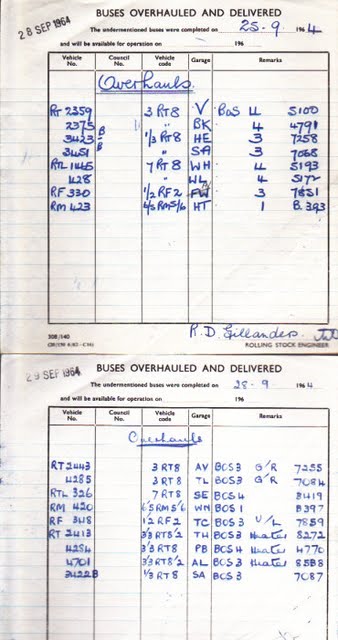 28 SEP 1964
BUSES OVERHAULED AND DELIVERED
The undermentioned buses were completed on 25.9 1964
and will be available for operation on 196
Vehicle No. Council No. Vehicle code Garage Remarks
Overhauls
RT 2359 3 RT8 V BOS 4 5100
2375 " BK 4 4791
3423 B 1/3 RT8 HE 3 7258
3451 B " SA 3 7068
RTL 1465 7 RT8 WH 4 5193
428 " WL 4 5172
RF 330 1/2 RF2 3 7851
RM 423 RM5/6 HT 1 B.393
R.D. Gillanders.
ROLLING STOCK ENGINEER
308/140
29 SEP 1964
BUSES OVERHAULED AND DELIVERED
The undermentioned buses were completed on 28.9 1964
and will be available for operation on 196
Vehicle No. Council No. Vehicle code Garage Remarks
Overhauls
RT 2443 3 RT8 AV BOS3 G/R 7255
4285 3 RT8 TL BOS3 G/R 7084
RTL 326 7 RT8 SE BOS4 8419
RM 420 6/5 RM5/6 WN BOS1 B397
RF 348 1/2 RF2 TC BOS3 U/L 7859
RT 2413 3/3 RT8/2 TH BOS3 Heater 8272
4284 3/3 RT8 PB BOS4 Heater 4770
4701 3/3 RT8/2 AL BOS3 Heater 8588
3422B 1/3 RT8 SA BOS3 7087